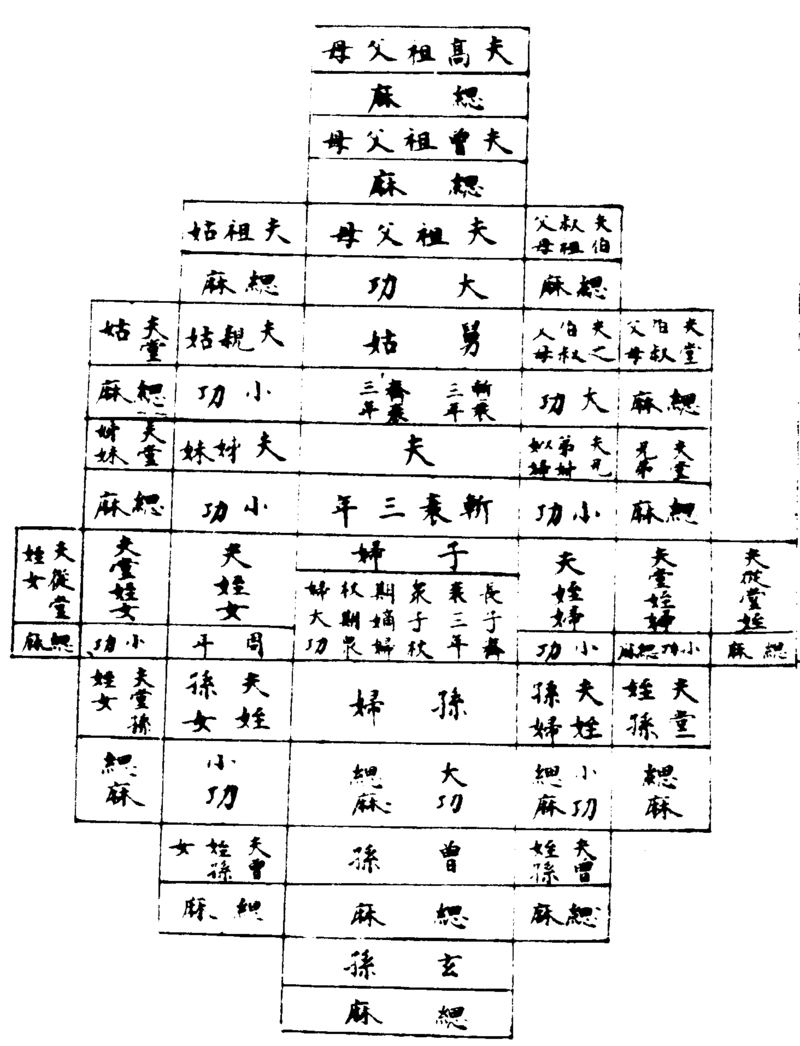 夫高祖父母
緦麻
夫曾祖父母
緦麻
夫叔父
伯祖母
夫祖父母
夫祖姑
緦麻
大功
緦麻
夫堂
伯叔
父母
夫之
伯叔
父母
舅姑
夫親姑
夫堂姑
緦麻
大功
斬衰三年
齊衰三年
小功
緦麻
夫堂
兄弟
夫兄
弟姊
姒婦
夫
夫姊妹
夫堂
姊妹
緦麻
小功
斬衰三年
小功
緦麻
夫從堂姪
夫堂姪婦
夫姪婦
子婦
夫姪女
夫堂姪女
夫從堂
姪女
長子齊
衰三年
衆子杖
期嫡婦
杖期衆
婦大功
緦麻
小功緦麻
小功
周年
小功
緦麻
夫堂
姪孫
夫姪
孫婦
孫婦
夫姪
孫女
夫堂孫
姪女
緦麻
小功
緦麻
大功
緦麻
小功
緦麻
夫曾
姪孫
曾孫
夫曾
姪孫
女
緦麻
緦麻
緦麻
玄孫
緦麻